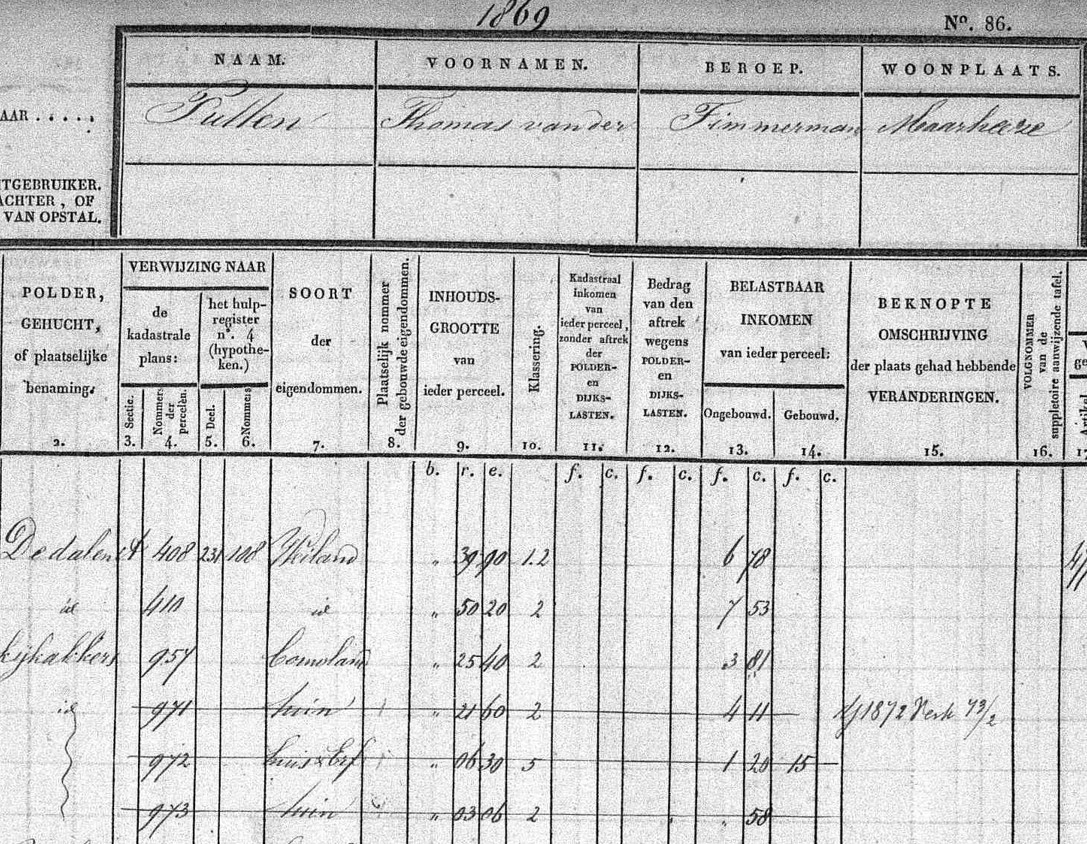 1869
Nº. 86.
NAAM. VOORNAMEN. BEROEP. WOONPLAATS.
AAR ..... Putten Thomas van der Timmerman Maarheeze
TGEBRUIKER.
ACHTER, OF
VAN OPSTAL.
POLDER,
GEHUCHT,
of plaatselijke
benaming.
2.
VERWIJZING NAAR
de
kadastrale
plans:
Sectie.
3.
Nommers
der
percelen.
4.
het hulp-
register
nº. 4
(hypothe-
ken.)
Deel.
5.
Nommers
6.
SOORT
der
eigendommen.
7.
Plaatselijk nommer
der gebouwde eigendommen.
8.
INHOUDS-
GROOTTE
van
ieder perceel.
9.
Klassering.
10.
Kadastraal
inkomen
van
ieder perceel,
zonder aftrek
der
POLDER-
en
DIJKS-
LASTEN.
11.
Bedrag
van den
aftrek
wegens
POLDER-
en
DIJKS-
LASTEN.
12.
BELASTBAAR
INKOMEN
van ieder perceel:
Ongebouwd.
13.
Gebouwd.
14.
BEKNOPTE
OMSCHRIJVING
der plaats gehad hebbende
VERANDERINGEN.
15.
VOLGNOMMER
van de
suppletoire aanwijzende tafel.
16.
Artikel
17
b. r. e. f. c. f. c. f. c. f. c.
De dalen A 408 231 108 Weiland " 39 90 1.2 6 78
id 410 id " 50 20 2 7 53
kijkakkers 957 Bouwland " 25 40 2 3 81
id 971 tuin " 21 60 2 4 11 dj 1872 Verk 73/2
972 huis & Erf " 06 30 5 1 20 15
973 tuin " 03 06 2 " 58